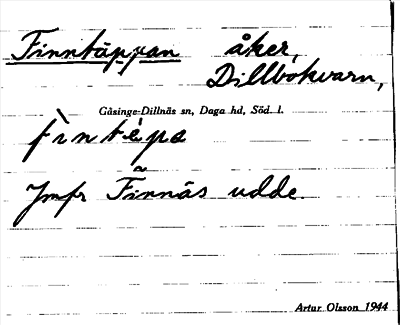 Finntäppan åker,
Dillbokvarn,
Gåsinge-Dillnäs sn, Daga hd, Söd. l.
fìntɛ̀pa
Jmfr Finnäs udde.
Artur Olsson 1944